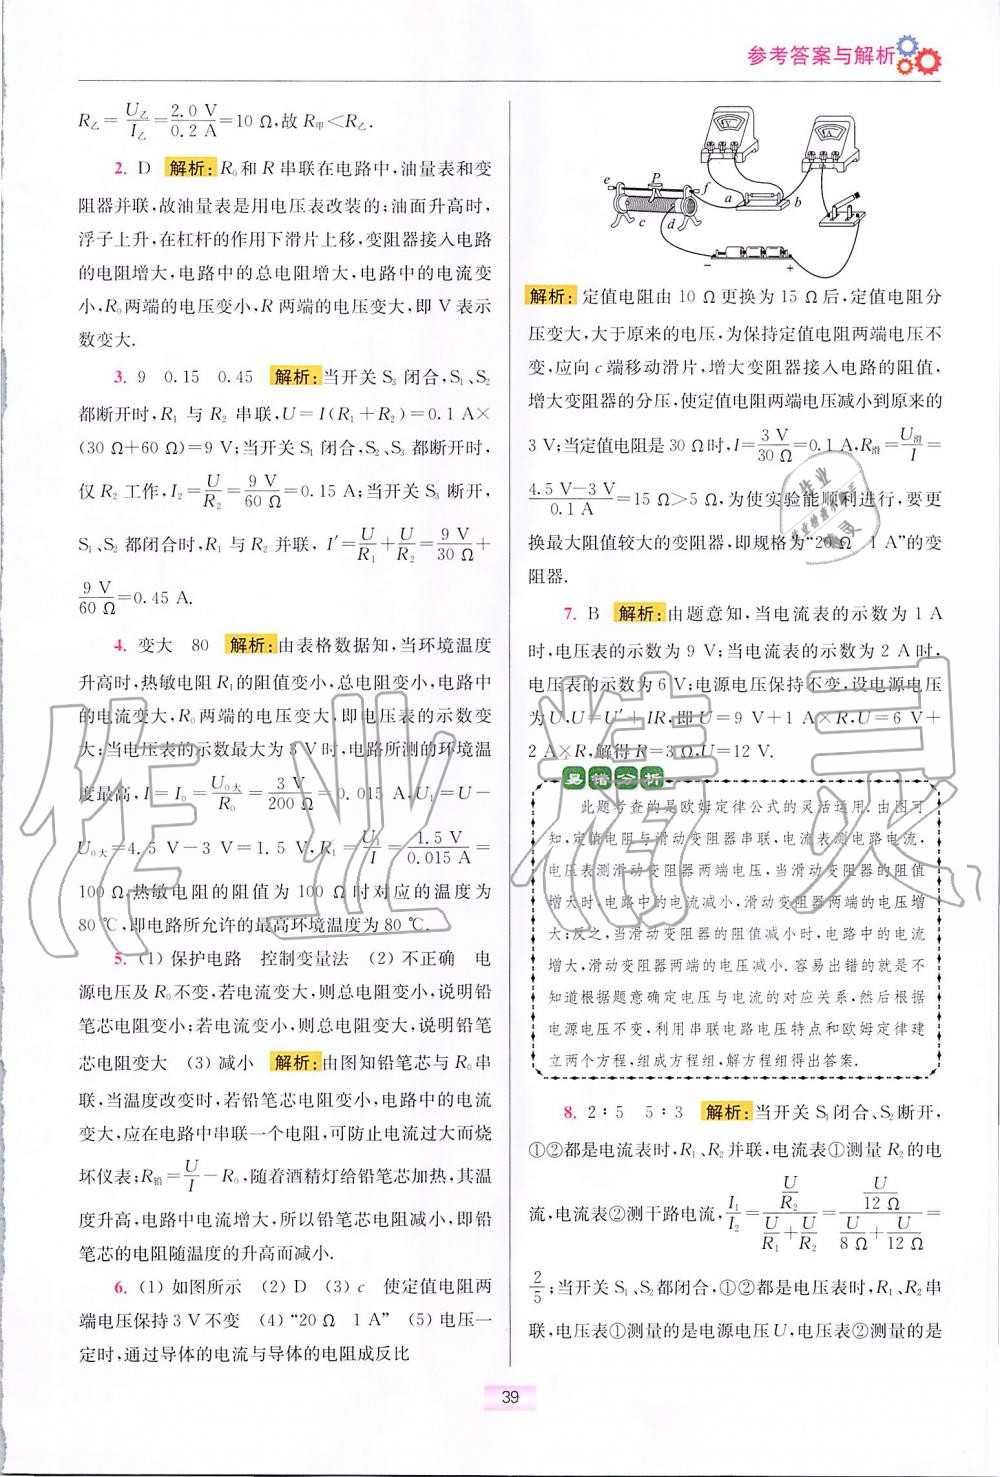 参考答案与解析
R乙=U乙/I乙=2.0 V/0.2 A=10 Ω,故 R甲<R乙.
2. D 解析:R₀和 R 串联在电路中,油量表和变
阻器并联,故油量表是用电压表改装的;油面升高时,
浮子上升,在杠杆的作用下滑片上移,变阻器接入电路
的电阻增大,电路中的总电阻增大,电路中的电流变
小,R₀两端的电压变小,R 两端的电压变大,即 V 表示
数变大.
3. 9 0.15 0.45 解析:当开关 S₃ 闭合,S₁、S₂
都断开时,R₁ 与 R₂ 串联,U=I(R₁+R₂)=0.1 A×
(30 Ω+60 Ω)=9 V;当开关 S₁ 闭合,S₂、S₃ 都断开时,
仅 R₂ 工作,I₂=U/R₂=9 V/60 Ω=0.15 A;当开关 S₃ 断开,
S₁、S₂ 都闭合时,R₁ 与 R₂ 并联,I′=U/R₁+U/R₂=9 V/30 Ω+
9 V/60 Ω=0.45 A.
4. 变大 80 解析:由表格数据知,当环境温度
升高时,热敏电阻 R₁的阻值变小,总电阻变小,电路中
的电流变大,R₀两端的电压变大,即电压表的示数变
大;当电压表的示数最大为 3 V时,电路所测的环境温
度最高,I=I₀=U₀大/R₀=3 V/200 Ω=0.015 A,U₁=U−
U₀大=4.5 V−3 V=1.5 V,R₁=U₁/I=1.5 V/0.015 A=
100 Ω,热敏电阻的阻值为 100 Ω时对应的温度为
80 ℃,即电路所允许的最高环境温度为 80 ℃.
5. (1) 保护电路 控制变量法 (2) 不正确 电
源电压及 R₀不变,若电流变大,则总电阻变小,说明铅
笔芯电阻变小;若电流变小,则总电阻变大,说明铅笔
芯电阻变大 (3) 减小 解析:由图知铅笔芯与 R₀串
联,当温度改变时,若铅笔芯电阻变小,电路中的电流
变大,应在电路中串联一个电阻,可防止电流过大而烧
坏仪表;R铅=U/I−R₀,随着酒精灯给铅笔芯加热,其温
度升高,电路中电流增大,所以铅笔芯电阻减小,即铅
笔芯的电阻随温度的升高而减小.
6. (1) 如图所示 (2) D (3) c 使定值电阻两
端电压保持 3 V不变 (4) “20 Ω 1 A” (5) 电压一
定时,通过导体的电流与导体的电阻成反比
V
A
e
P
f
a
b
c
d
−
+
解析:定值电阻由 10 Ω更换为 15 Ω后,定值电阻分
压变大,大于原来的电压,为保持定值电阻两端电压不
变,应向 c 端移动滑片,增大变阻器接入电路的阻值,
增大变阻器的分压,使定值电阻两端电压减小到原来的
3 V;当定值电阻是 30 Ω时,I=3 V/30 Ω=0.1 A,R滑=U滑/I=
4.5 V−3 V/0.1 A=15 Ω>5 Ω,为使实验能顺利进行,要更
换最大阻值较大的变阻器,即规格为“20 Ω 1 A”的变
阻器.
7. B 解析:由题意知,当电流表的示数为 1 A
时,电压表的示数为 9 V;当电流表的示数为 2 A时,
电压表的示数为 6 V;电源电压保持不变,设电源电压
为 U,U=U′+IR,即 U=9 V+1 A×R,U=6 V+
2 A×R,解得 R=3 Ω,U=12 V.
易错分析
此题考查的是欧姆定律公式的灵活运用.由图可
知,定值电阻与滑动变阻器串联,电流表测电路电流,
电压表测滑动变阻器两端电压,当滑动变阻器的阻值
增大时,电路中的电流减小,滑动变阻器两端的电压增
大;反之,当滑动变阻器的阻值减小时,电路中的电流
增大,滑动变阻器两端的电压减小.容易出错的就是不
知道根据题意确定电压与电流的对应关系,然后根据
电源电压不变,利用串联电路电压特点和欧姆定律建
立两个方程,组成方程组,解方程组得出答案.
8. 2∶5 5∶3 解析:当开关 S₁闭合、S₂断开,
①②都是电流表时,R₁、R₂并联,电流表①测量 R₂的电
流,电流表②测干路电流,I₁/I₂=(U/R₂)/(U/R₁+U/R₂)=(U/12 Ω)/(U/8 Ω+U/12 Ω)=
2/5;当开关 S₁、S₂都闭合,①②都是电压表时,R₁、R₂串
联,电压表①测量的是电源电压 U,电压表②测量的是
39
作业精灵